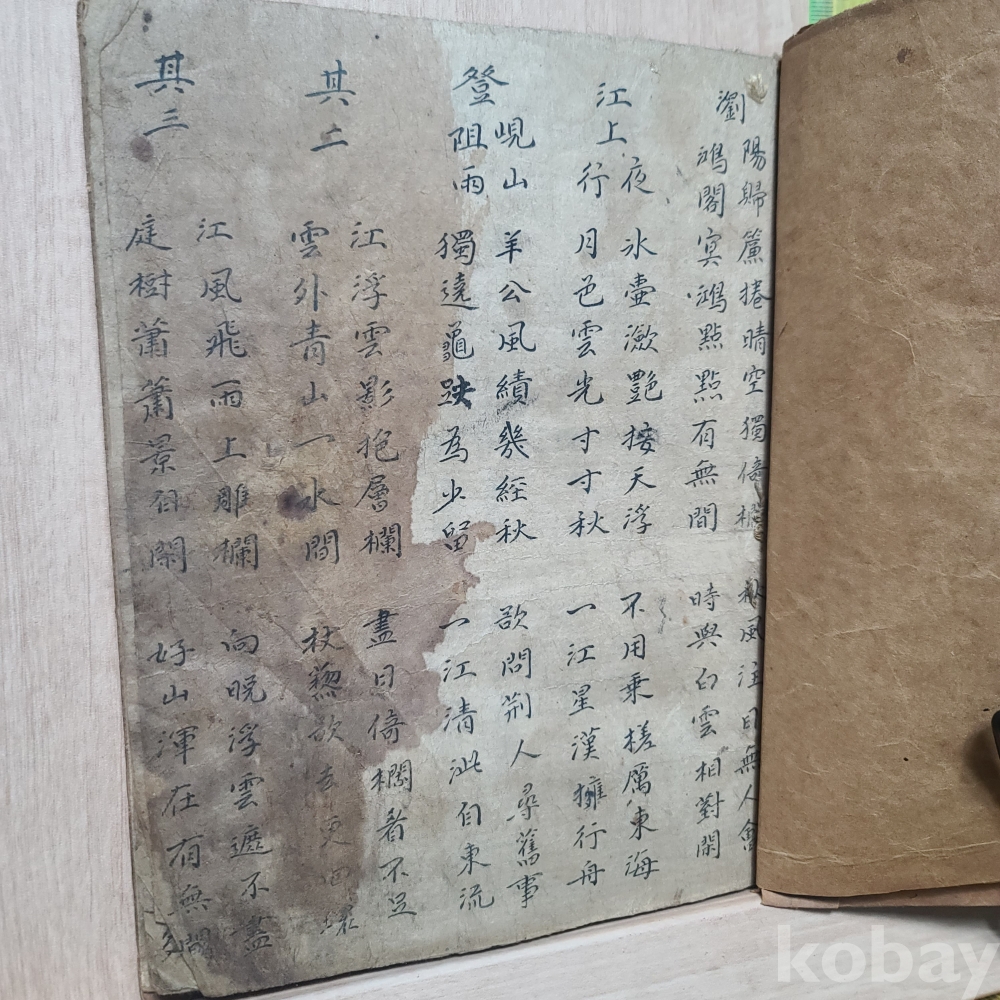 瀏
陽歸 簾捲晴空獨倚欄 秋風注目無人會
鴻閣 冥鴻點點有無間 時與白雲相對閑
江上
夜 氷壷瀲艷接天浮 不用乗槎厲東海
行 月色雲光寸寸秋 一江星漢擁行舟
登
峴山 羊公風績幾經秋 欲問荆人尋舊事
阻雨 獨遶龜趺為少留 一江清泚自東流
其二
江浮雲影抱層欄 盡日倚欄看不足
雲外青山一水間 杖藜欲去更回環
其三
江風飛雨上雕欄 向晩浮雲遮不盡
庭樹蕭蕭景自閑 好山渾在有無間
kobay